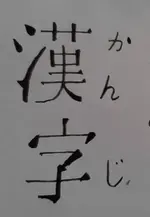 漢字
かんじ